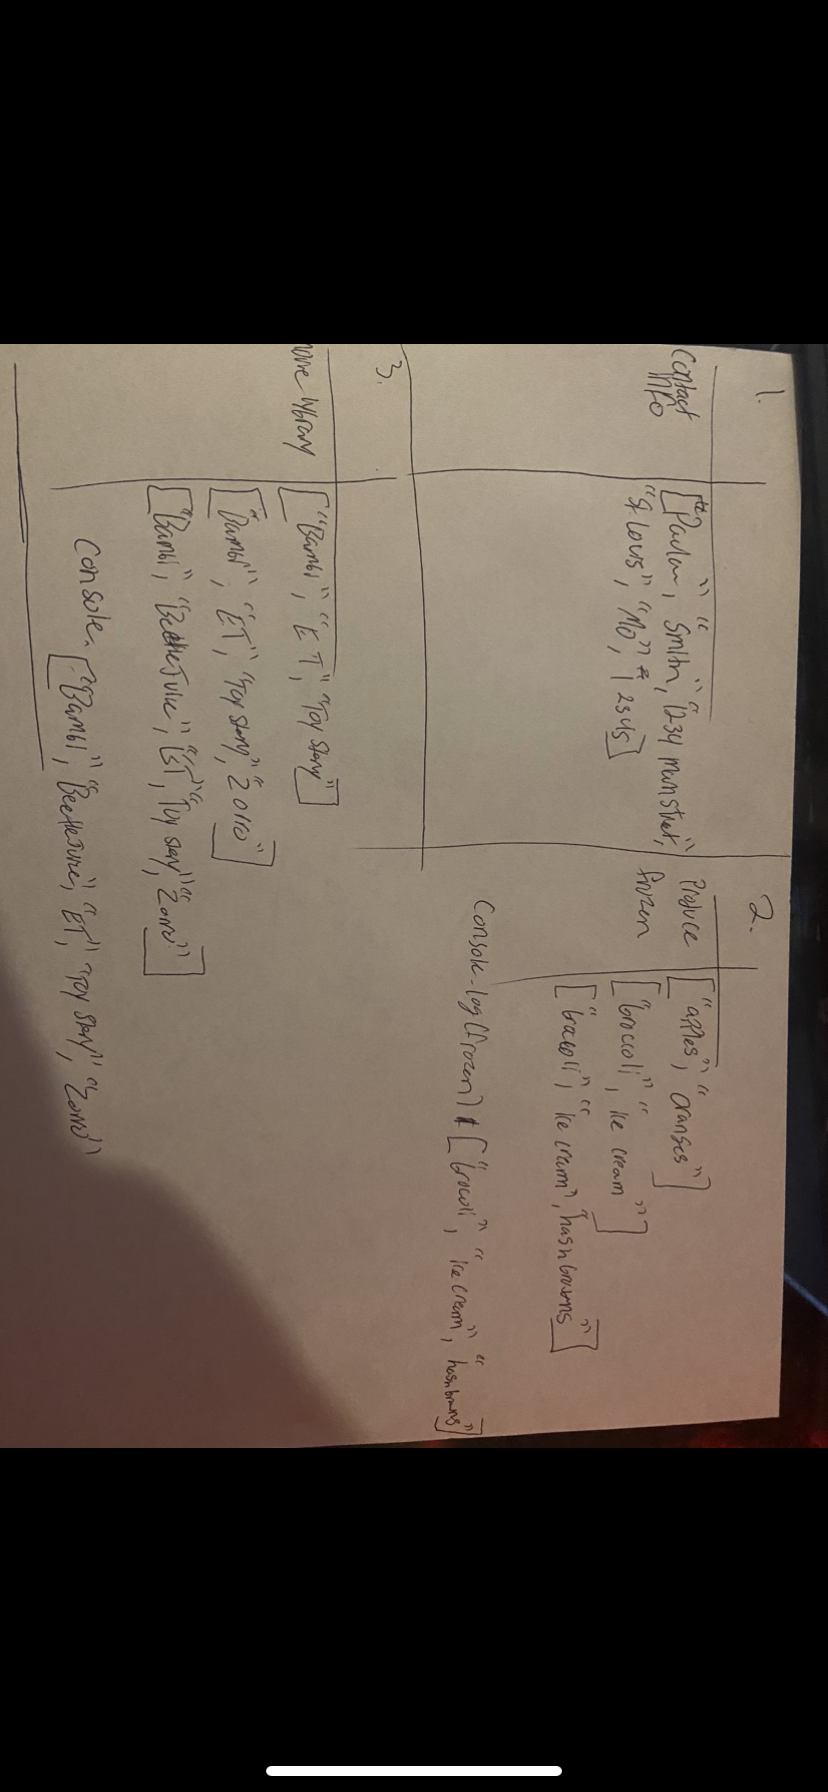 1.
Contact
Info
["Paula", "Smith", "1234 main street",
"St Louis", "Mo", "12345]
2.
Produce
["apples", "oranges"]
frozen
["broccoli", "ice cream"]
["brocoli", "ice cream", "hashbrowns"]
Console.log(frozen) ["brocoli", "ice cream", "hashbrowns"]
3.
movie library
["Bambi", "ET", "Toy Story"]
["Bambi", "ET", "Toy Story", "Zorro"]
["Bambi", "Beetlejuice", "ET", "Toy Story", "Zorro"]
Console. ["Bambi", "Beetlejuice", "ET", "Toy Story", "Zorro"